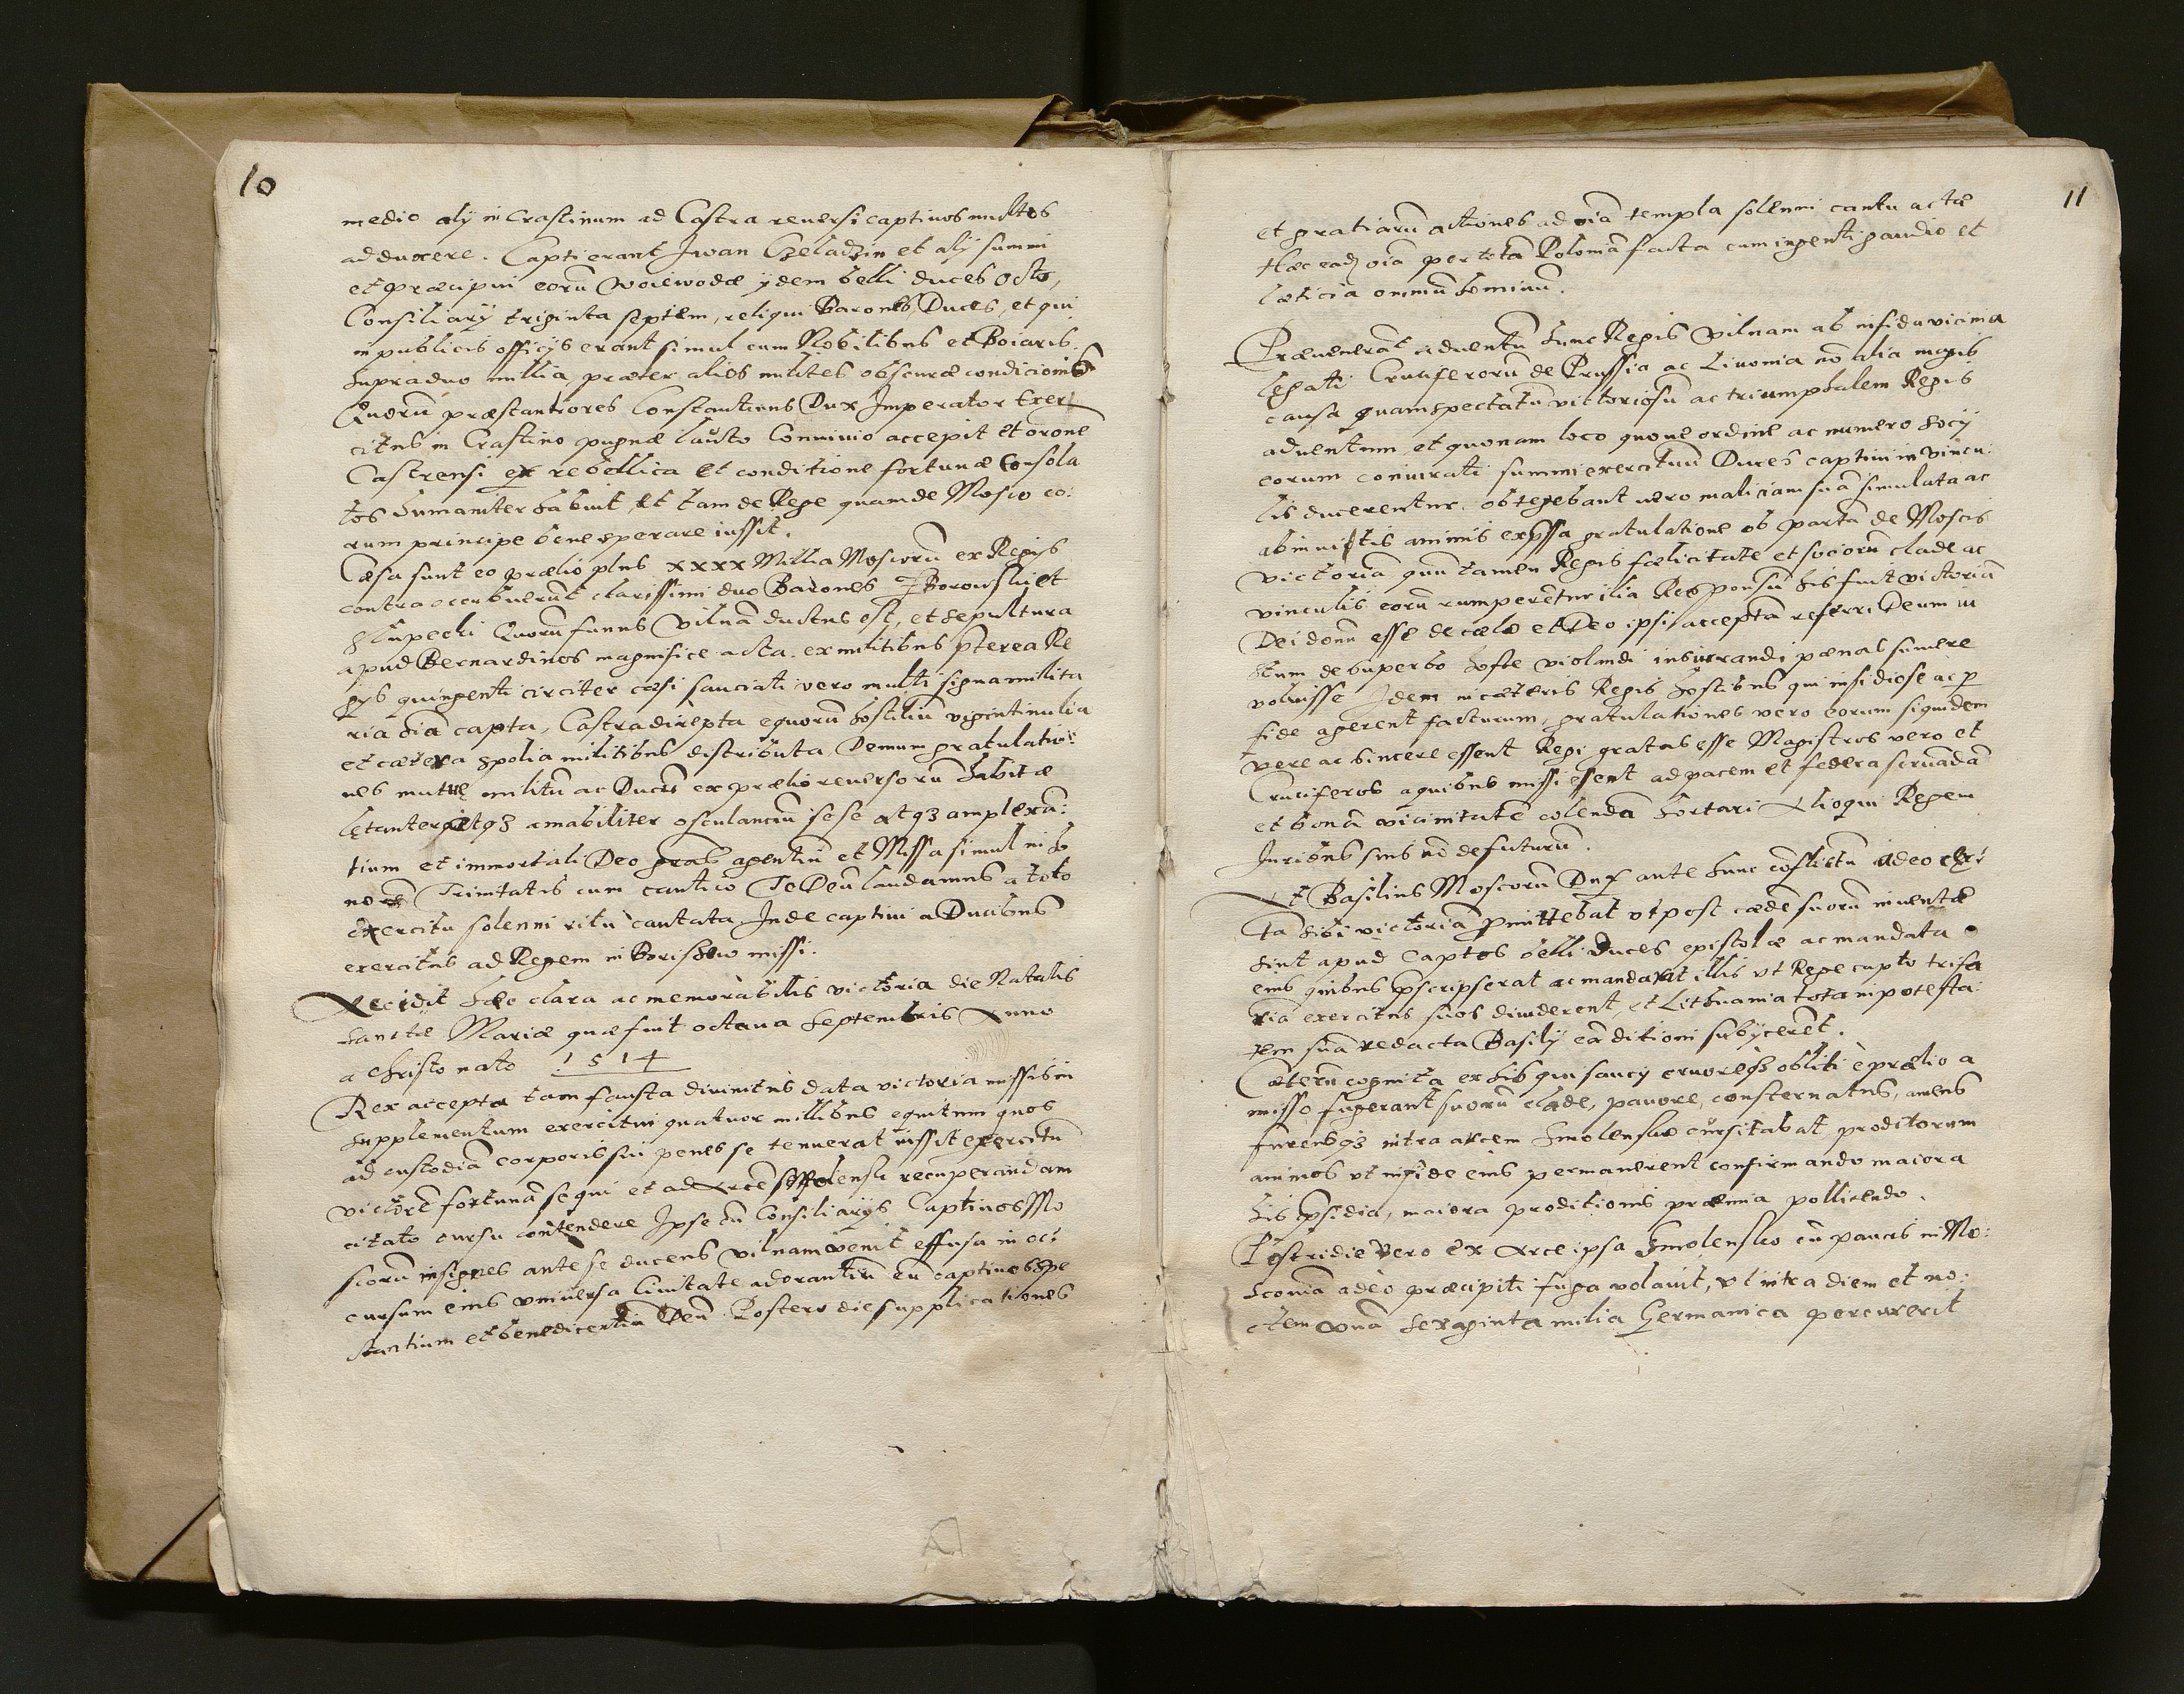 10
medio alij in Crastinum ad Castra reuersi captiuos multos
adduxere. Capti erant Iwan Czeladzin et alij summi
et præcipui eorū woiewodæ ijdem belli duces octo,
Consiliarij triginta septem, reliqui Barones, Duces, et qui
in publicis officijs erant simul cum Nobilibus et Boiaris
supra duo millia, præter alios milites obscuræ condicionis
Quorū præstantiores Constantinus Dux Imperator Exer
citus in Crastino pugnæ lauto Conuiuio accepit et orōne
Castrensi ex re bellica et conditione fortunæ Consola
tos humaniter habuit, Et tam de Rege quam de Mosco eo:
rum principe bene sperare iussit.
Cæsa sunt eo prælio plus xxxx Millia Moscorū ex Regijs
contra occubuerūt clarissimi duo Barones Zborowski et
Slupecki Quorū funus Vilnā ductus est, et sepultura
apud Bernardinos magnifice acta. ex militibus p̄terea Re
gijs quingenti circiter cæsi sauciati vero multi signa milita
ria oīa capta, Castra direpta equorū hostiliū viginti milia
et cætera spolia militibus distributa Demum gratulatio:
nes mutuę militū ac Ducū ex prælio reuersorū habitæ
lętanter atq3 amabiliter osculanciū sese atq3 amplexā:
tium et immortali Deo grās agentiū et Missa simul in ho
norē Trinitatis cum cantico Te Deū laudamus a toto
exercitu solenni ritu cantata. Inde captiui a Ducibus
exercitus ad Regem in Borishow missi.
Accidit hæc clara ac memorabilis victoria die Natalis
Sanctæ Mariæ quæ fuit octaua Septembris Anno
a Christo nato 1514
Rex accepta tam fausta diuinitus data victoria missis in
supplementum exercitui quatuor millibus equitum quos
ad custodiā corporis sui penes se tenuerat iussit exercitū
victorē fortunā sequi et ad Arcē Smolensk recuperandam
citato cursu contendere Ipse cū Consiliarijs Captiuos Mo
scorū insignes ante se ducens Vilnam venit effusa in oc:
cursum eius vniuersa Ciuitate adorantiū eū captiuos spe
ctantium et benedicentiū Deū. Postero die supplicationes
11
et gratiarū actiones ad oīa templa solenni cantu actæ
Hæc eadē oīa per totā Poloniā facta cum ingenti gaudio et
læticia omniū hominū.
Præuenerāt aduentū hunc Regis Vilnam ab infida vicinia
legati Cruciferorū de Prussia ac Liuonia nō alia magis
causa quam spectatū victoriosū ac triumphalem Regis
aduentum et quonam loco quoue ordine ac numero socij
eorum coniurati summi exercituū Duces captiui in vincu:
lis ducerentur. obtegebant uero maliciam suā simulata ac
ab inuitis animis exp̄ssa gratulatione ob partā de Moscis
victoriā quū tamen Regis fœlicitate et sociorū clade ac
vinculis eorū rumperētur ilia Responsū his fuit victoriā
Dei donū esse de cælo et Deo ipsi acceptā referri Deum iu
stum de superbo hoste violandi iusiurandi pænas sumere
voluisse Idem in cæteris Regis hostibus qui insidiose ac p̄
fide agerent facturum, gratulationes vero eorum siquidem
vere ac sincere essent Regi gratas esse Magistros vero et
Cruciferos a quibus missi essent ad pacem et federa seruādā
et bonā vicinitatē colendā hortari Alioqui Regem
Iuribus suis nō defuturū.
At Basilius Moscorū Dux ante hunc cōflictū adeo cer:
tā sibi victoriā p̄mittebat vt post cædē suorū inuentæ
sint apud Captos belli Duces epistolæ ac mandata
eius quibus p̄scripserat ac mandarat illis vt Rege capto trifa
riā exercitus suos diuiderent, et Lithuania tota in potesta:
tem suā redacta Basilij eā ditioni subijcerēt.
Cæterū cognita ex his qui saucij cruoreq3 obliti e prælio a
misso fugerant suorū clade, pauore, consternatus, amens
furensq3 intra arcem Smolensko cursitabat proditorum
animos vt in fide eius permanerent confirmando maiora
his p̄sidia, maiora proditionis præmia pollicendo.
Postridie vero ex Arce ipsa Smolensko cū paucis in Mo:
scouiā adeo præcipiti fuga volauit, vt intra diem et no:
ctem vnā sexaginta milia Germanica percurrerit